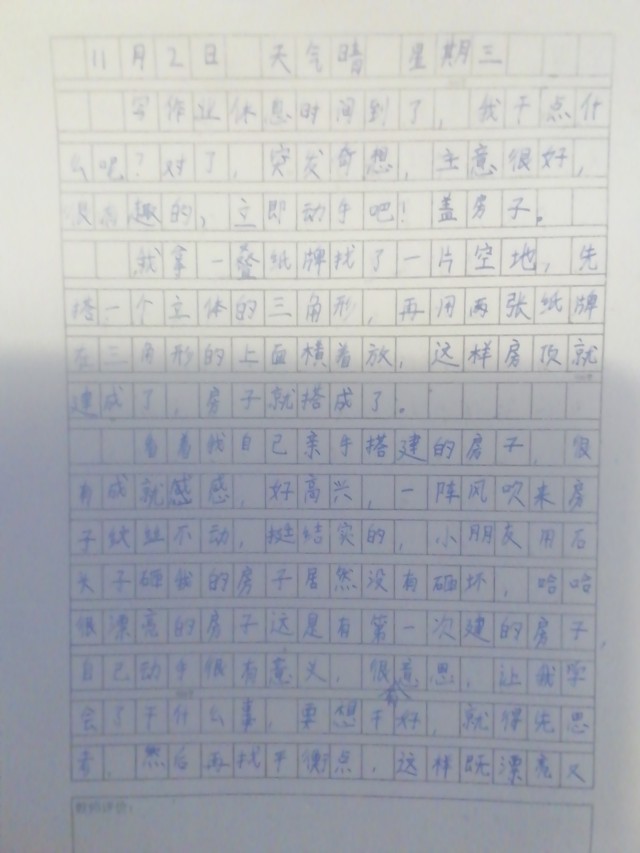 11月2日 天气晴 星期三
写作业休息时间到了，我干点什
么呢？对了，突发奇想，主意很好，
趣的，立即动手吧！盖房子。
我拿一叠纸牌找了一片空地，先
搭一个立体的三角形，再用两张纸牌
在三角形的上面横着放，这样房顶就
建成了，房子就搭成了。
看着我自己亲手搭建的房子，很
有成就感感，好高兴，一阵风吹来房
子纹丝不动，挺结实的，小朋友用石
头子砸我的房子居然没有砸坏，哈哈
很漂亮的房子这是有第一次建的房子，
自己动手很有意义，很有意思，让我学
会了干什么事，要想干好，就得先思
考，然后再找平衡点，这样既漂亮又
教师评价：